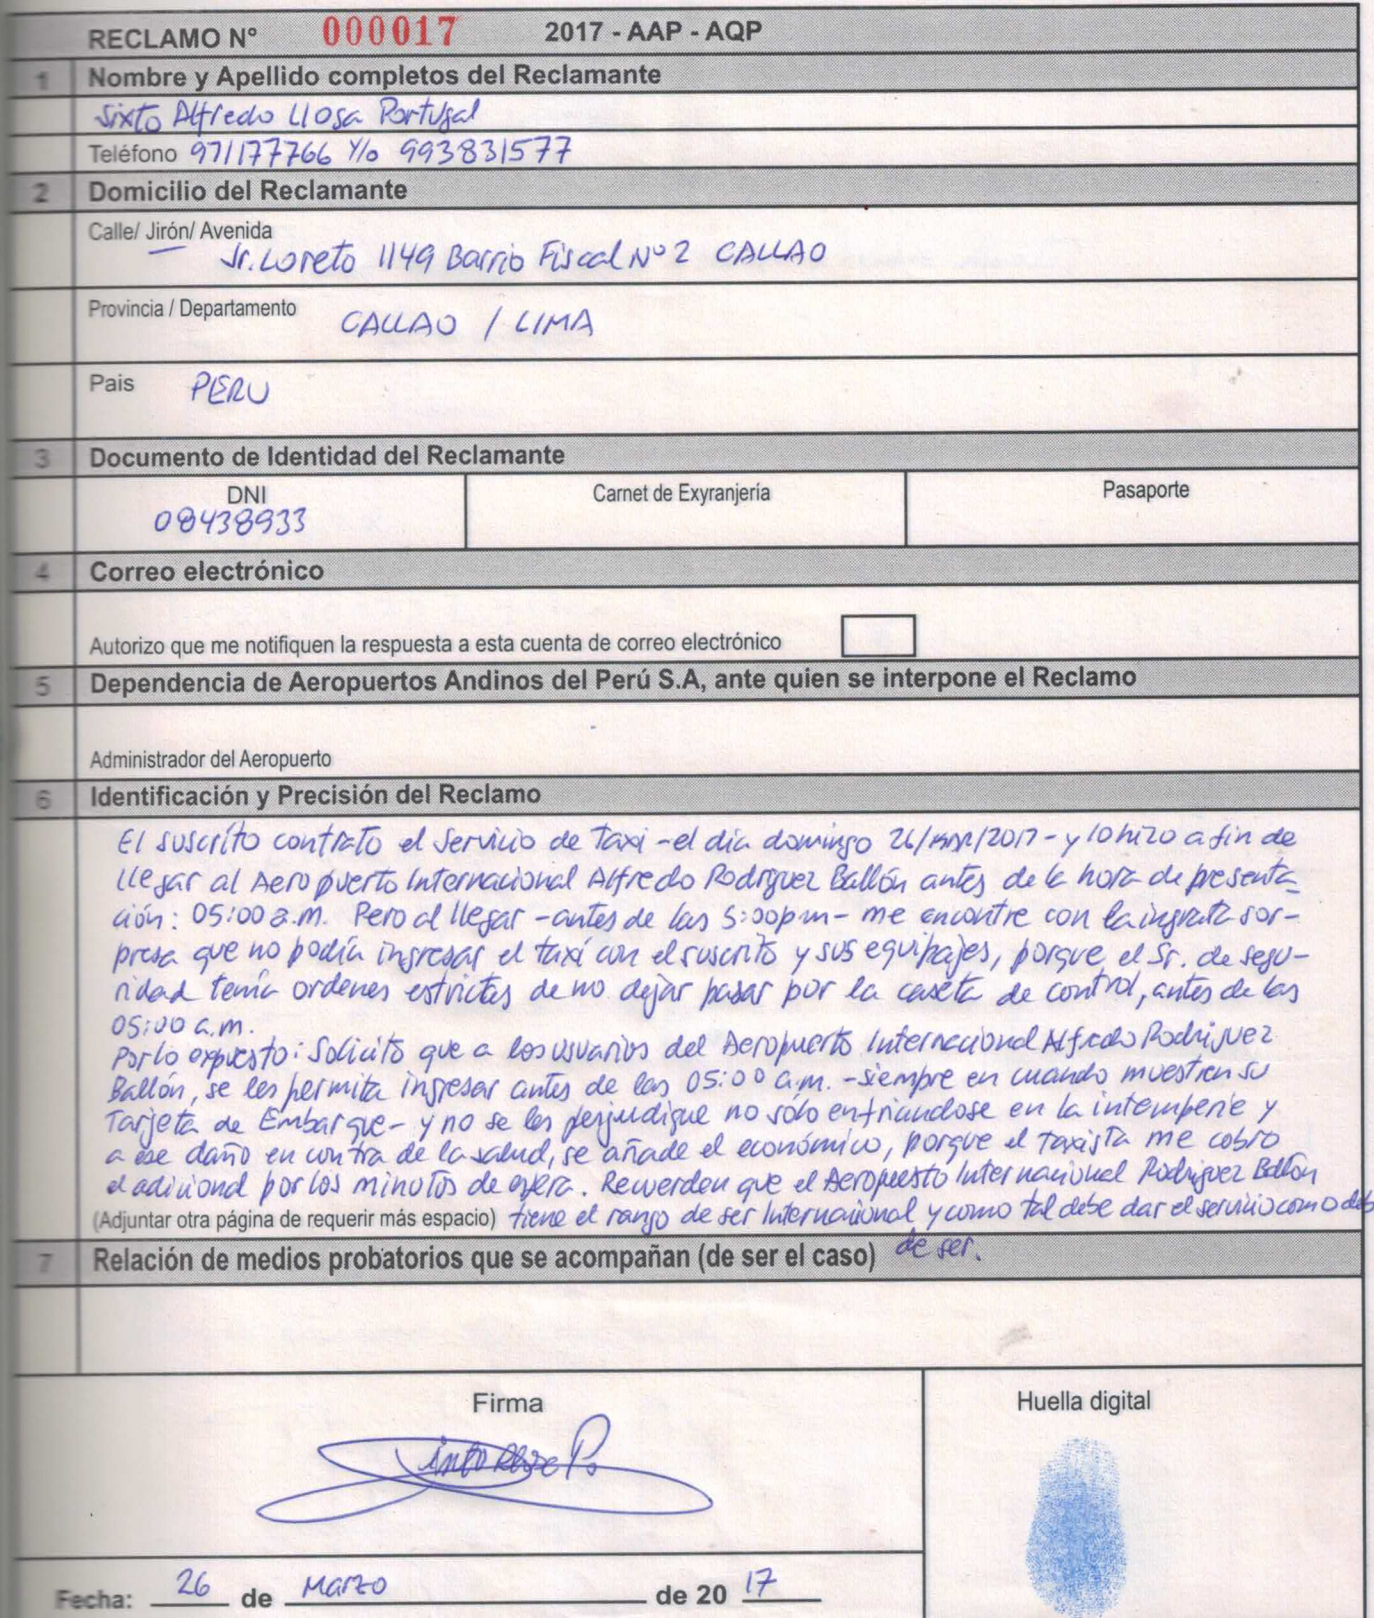 RECLAMO N° 000017 2017 - AAP - AQP
1 Nombre y Apellido completos del Reclamante
Sixto Alfredo Llosa Portugal
Teléfono 971177766 Y/o 993831577
2 Domicilio del Reclamante
Calle/ Jirón/ Avenida
Jr. Loreto 1149 Barrio Fiscal N° 2 CALLAO
Provincia / Departamento CALLAO / LIMA
Pais PERU
3 Documento de Identidad del Reclamante
DNI Carnet de Exyranjería Pasaporte
08438933
4 Correo electrónico
Autorizo que me notifiquen la respuesta a esta cuenta de correo electrónico
5 Dependencia de Aeropuertos Andinos del Perú S.A, ante quien se interpone el Reclamo
Administrador del Aeropuerto
6 Identificación y Precisión del Reclamo
El suscrito contrato el servicio de Taxi - el dia domingo 26/MAR/2017 - y lo hizo a fin de
llegar al Aeropuerto Internacional Alfredo Rodriguez Ballón antes de la hora de presenta-
ción: 05:00 a.m. Pero al llegar - antes de las 5:00pm - me encontre con la ingrata sor-
presa que no podía ingresar el taxi con el suscrito y sus equipajes, porque el Sr. de segu-
ridad tenía ordenes estrictas de no dejar pasar por la caseta de control, antes de las
05:00 a.m.
Por lo expuesto: Solicito que a los usuarios del Aeropuerto Internacional Alfredo Rodriguez
Ballón, se les permita ingresar antes de las 05:00 a.m. - siempre en cuando muestren su
Tarjeta de Embarque - y no se les perjudique no sólo enfriandose en la intemperie y
a ese daño en contra de la salud, se añade el económico, porque el taxista me cobro
el adicional por los minutos de espera. Recuerden que el Aeropuesto Internacional Rodriguez Ballón
(Adjuntar otra página de requerir más espacio) tiene el rango de ser Internacional y como tal debe dar el servicio como deb
7 Relación de medios probatorios que se acompañan (de ser el caso) de ser.
Firma Huella digital
Fecha: 26 de Marzo de 20 17